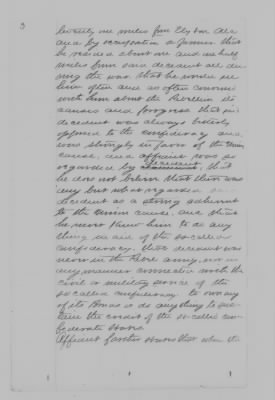 3
twenty one miles from Elyton Ala
and by occupation a farmer that
he resided about one and one half
miles from said decedent all du
ring the war that he would see
him often and as often converse
with him about the Rebellion its
causes and progress that said
decedent was always bitterly
opposed to the confederacy and
was strongly in favor of the Union
cause, and affiant was so
regarded by decedent that
he does not believe that there was
any but what regarded
decedent as a strong adherent
to the Union cause, and that
he never knew him to do any
thing in aid of the so called
confederacy. that decedent was
never in the Rebel army, nor in
any manner connected with the
civil or military service of the
so called confederacy to own any
of its Bonds or do any thing to sus
tain the credit of the so-called con
federate States.
Affiant further states that when the